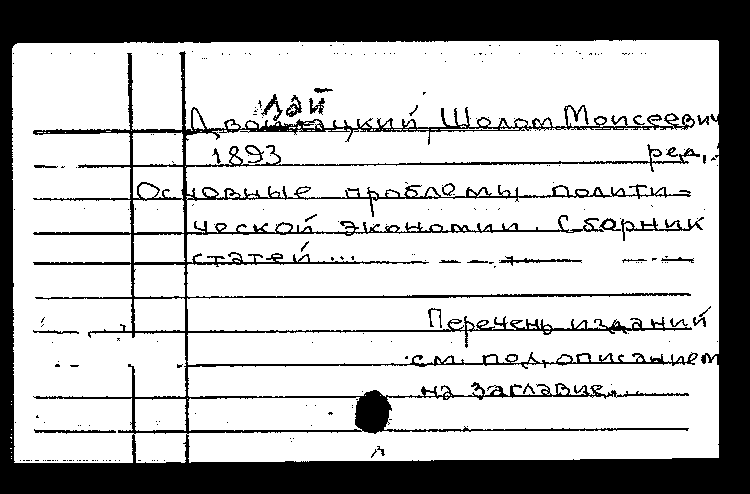 лай
Двойлацкий, Шолом Моисеевич
1893 ред.,
Основные проблемы полити-
ческой экономии. Сборник
статей ...
Перечень изданий
см. под описанием
на заглавие...